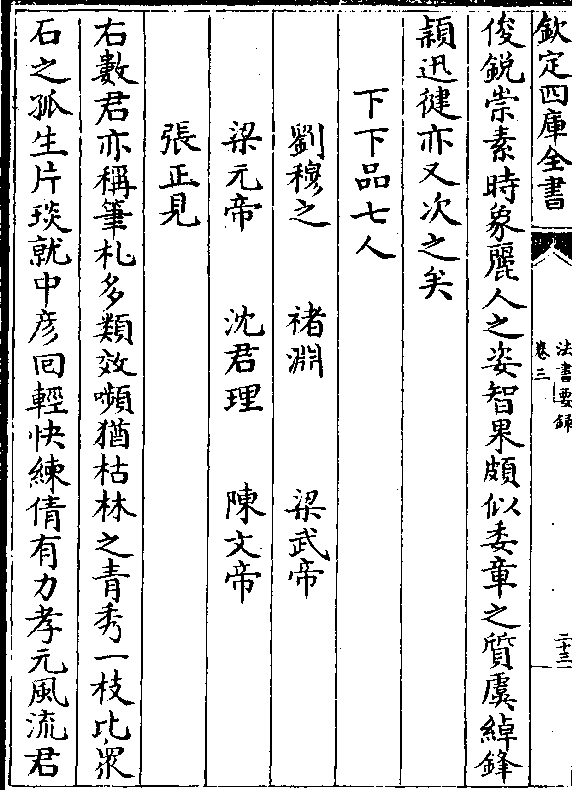 欽定四庫全書
法書要錄
卷三
二十三
俊銳崇素時象麗人之姿智果頗似委章之質虞綽鋒
頴迅徤亦又次之矣
下下品七人
劉穆之 褚淵 梁武帝
梁元帝 沈君理 陳文帝
張正見
右數君亦稱筆札多類效嚬猶枯林之青秀一枝比衆
石之孤生片琰就中彦回輕快練倩有力孝元風流君